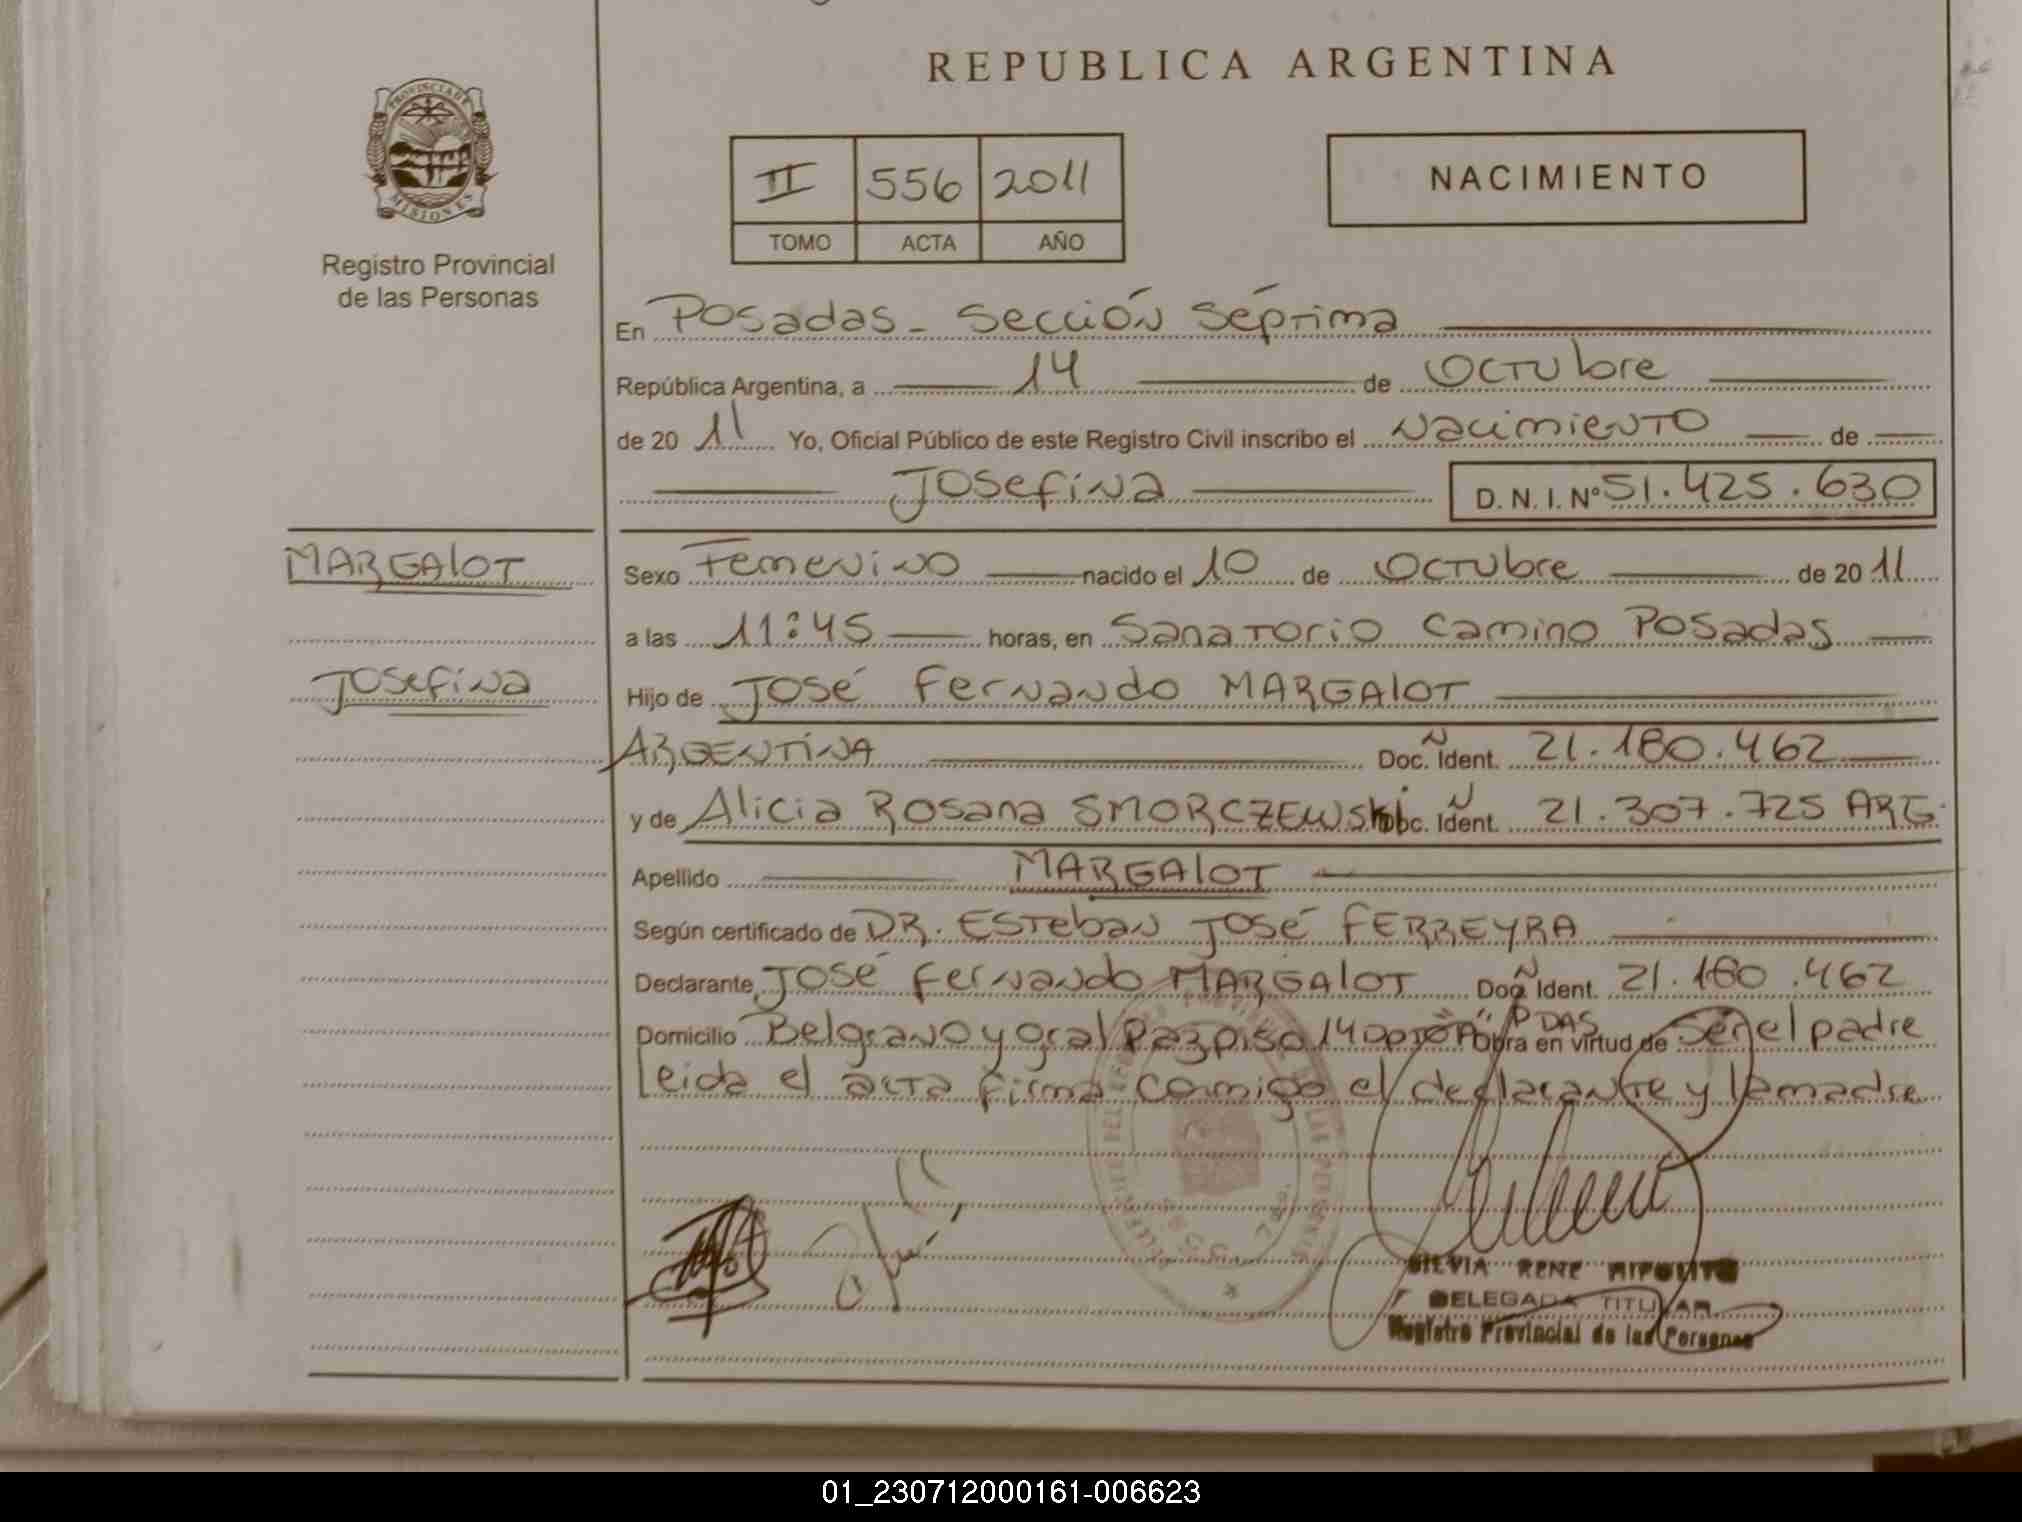 REPUBLICA ARGENTINA
PROVINCIA DE
MISIONES
Registro Provincial
de las Personas
II 556 2011
TOMO ACTA AÑO
NACIMIENTO
En Posadas - Sección Séptima
República Argentina, a 14 de Octubre
de 20 11 Yo, Oficial Público de este Registro Civil inscribo el Nacimiento de
Josefina D. N. I. Nº 51.425.630
MARGALOT
Josefina
Sexo Femenino nacido el 10 de Octubre de 20 11
a las 11:45 horas, en Sanatorio Camino Posadas
Hijo de José Fernando MARGALOT
ARGENTINA Doc. Ident. 21.180.462
y de Alicia Rosana SMORCZEWSKI Doc. Ident. 21.307.725 ARG.
Apellido MARGALOT
Según certificado de DR. Esteban José FERREYRA
Declarante José Fernando MARGALOT Doc. Ident. 21.180.462
Domicilio Belgrano y Gral Paz piso 14 Dpto "A" PDAS Obra en virtud de Ser el padre
Leida el acta firma conmigo el declarante y la madre
SILVIA RENE HIPOLITO
DELEGADA TITULAR
Registro Provincial de las Personas
01_230712000161-006623